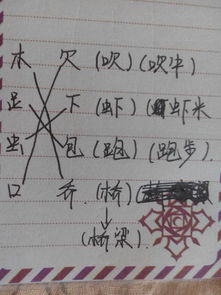 木 欠 (吹) (吹牛)
足 下 (虾) (虾米)
虫 包 (跑) (跑步)
口 乔 (桥)
(桥梁)